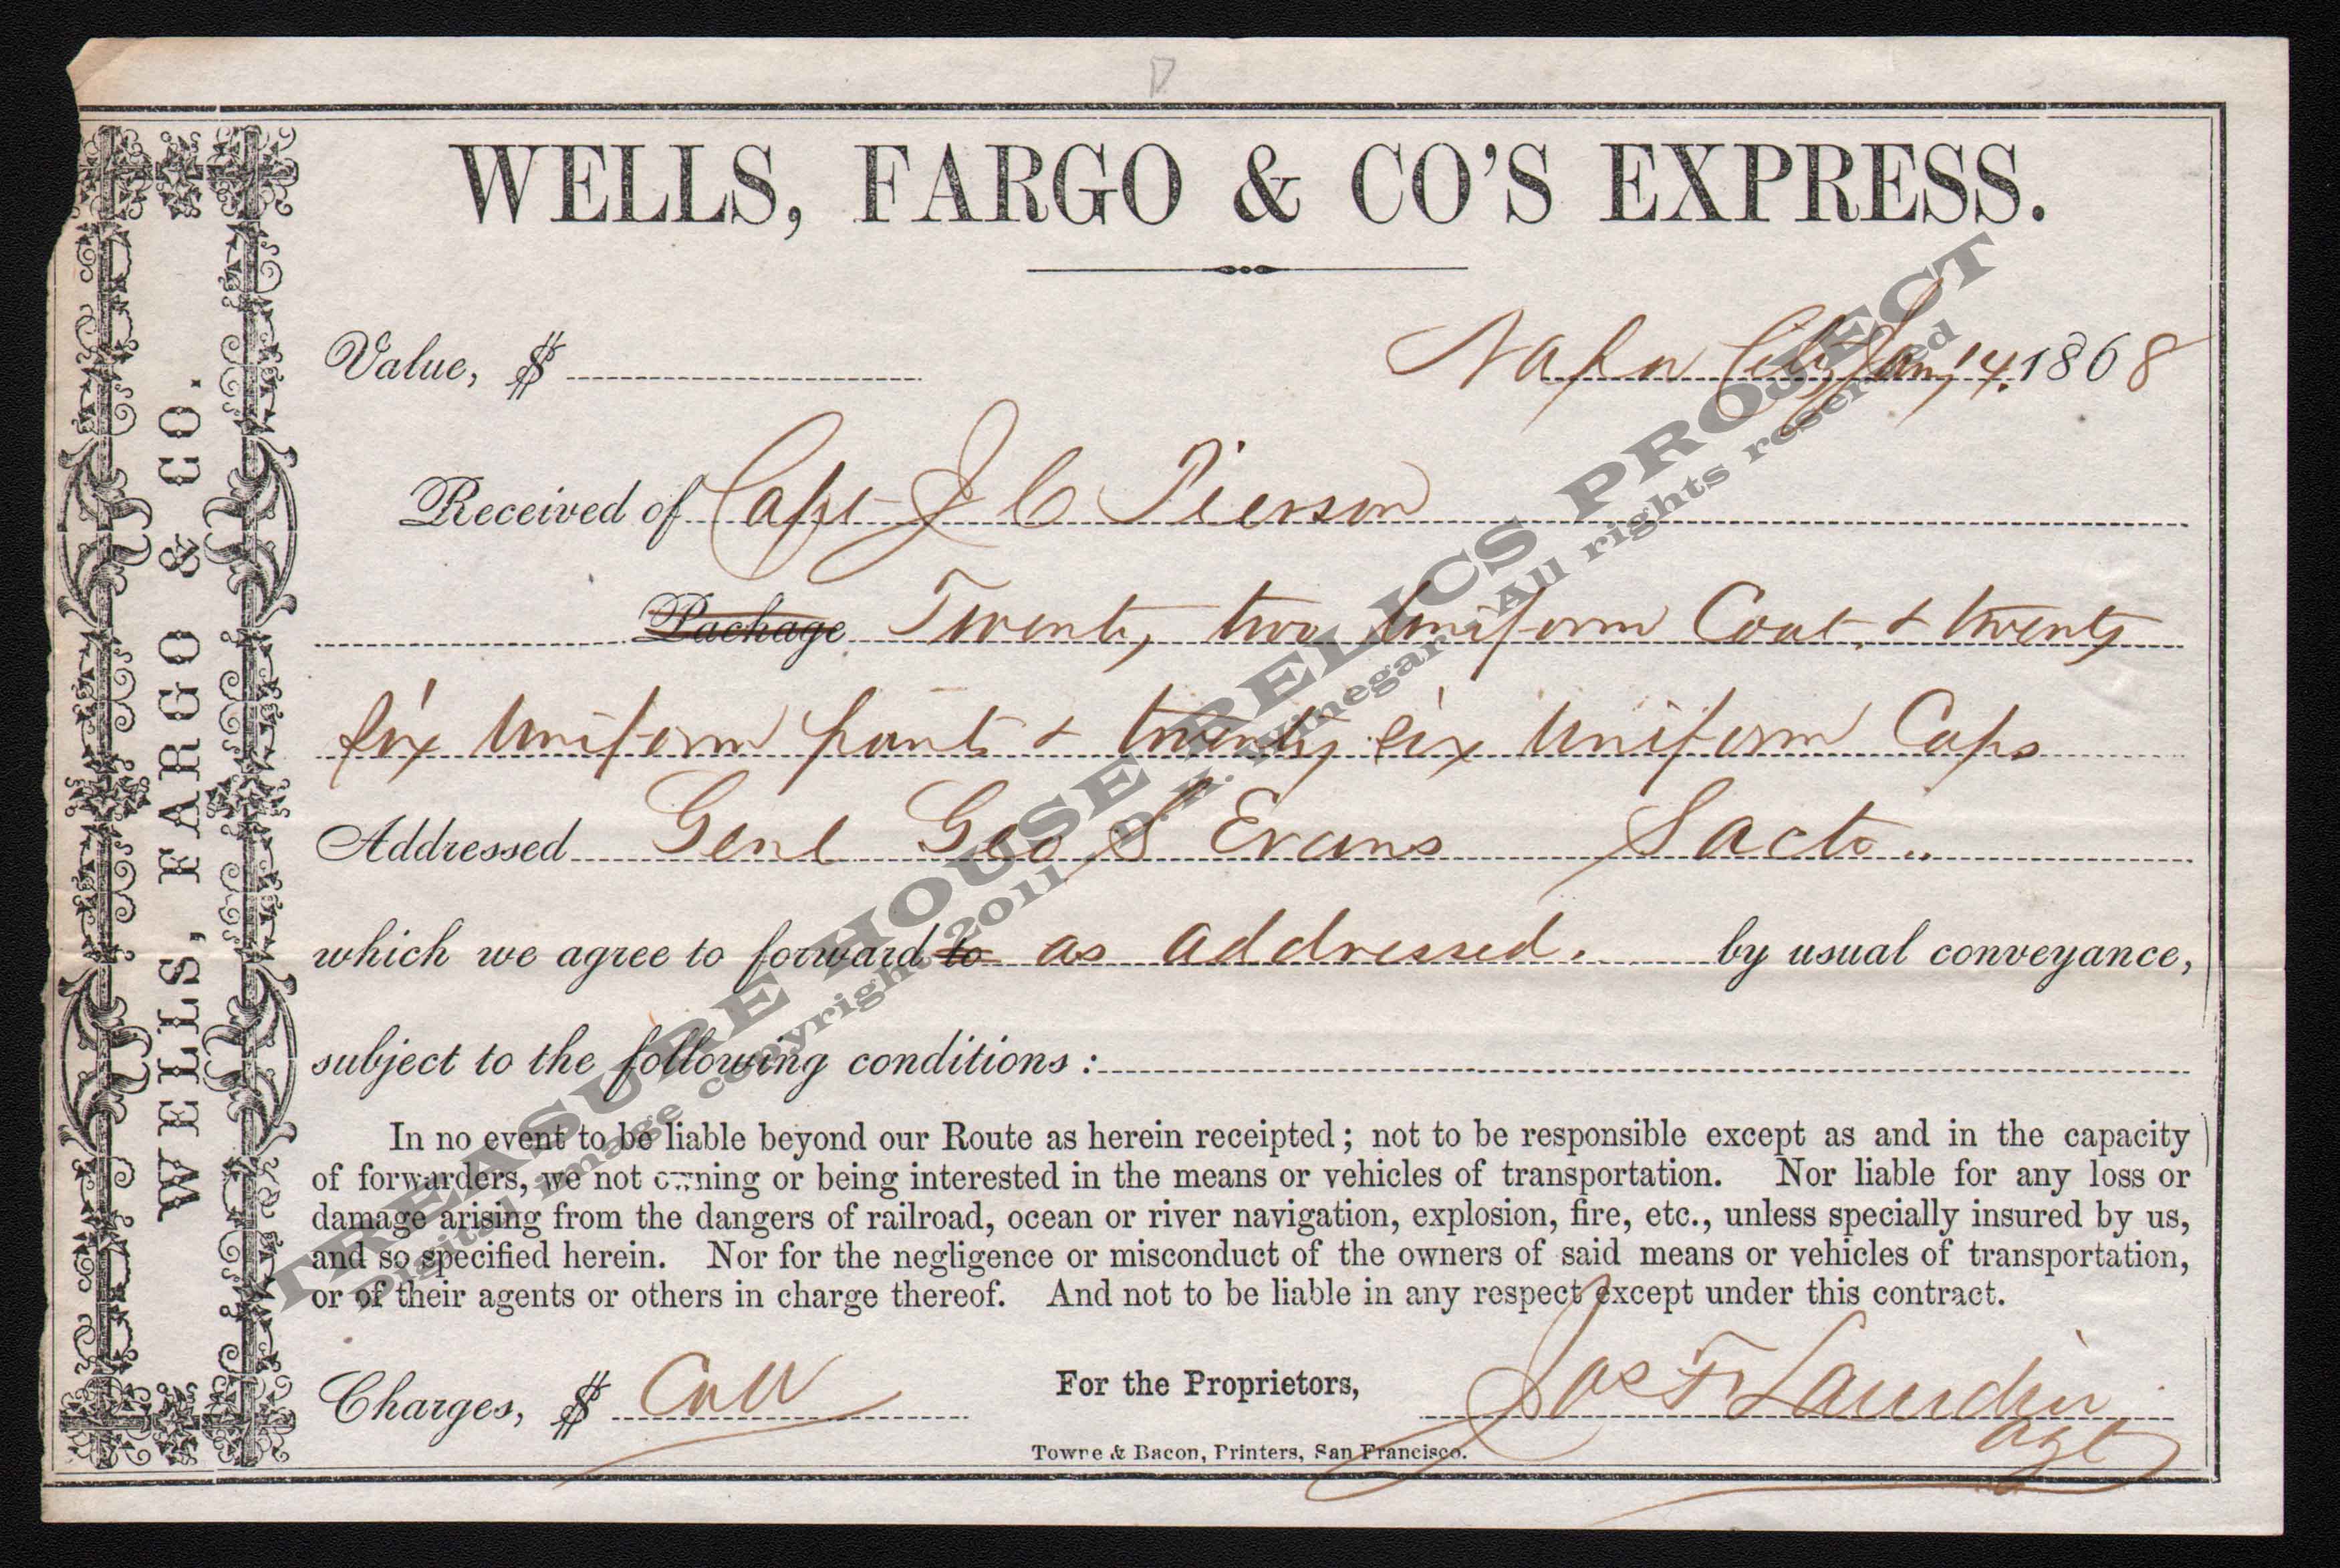 D
WELLS, FARGO & CO'S EXPRESS.
WELLS, FARGO & CO.
Value, $ Napa City Jany 14. 1868
Received of Capt J C Pierson
Package Twenty two Uniform Coats & twenty
six Uniform pants & twenty six Uniform Caps
Addressed Genl Geo S Evans Sacto..
which we agree to forward to as addressed. by usual conveyance,
subject to the following conditions:
In no event to be liable beyond our Route as herein receipted; not to be responsible except as and in the capacity
of forwarders, we not owning or being interested in the means or vehicles of transportation. Nor liable for any loss or
damage arising from the dangers of railroad, ocean or river navigation, explosion, fire, etc., unless specially insured by us,
and so specified herein. Nor for the negligence or misconduct of the owners of said means or vehicles of transportation,
or of their agents or others in charge thereof. And not to be liable in any respect except under this contract.
Charges, $ Coll For the Proprietors, Jos F
agt
Towne & Bacon, Printers, San Francisco.
TREASURE HOUSE RELICS PROJECT
Digital image copyright 2011 D.K. Winegar - All rights reserved